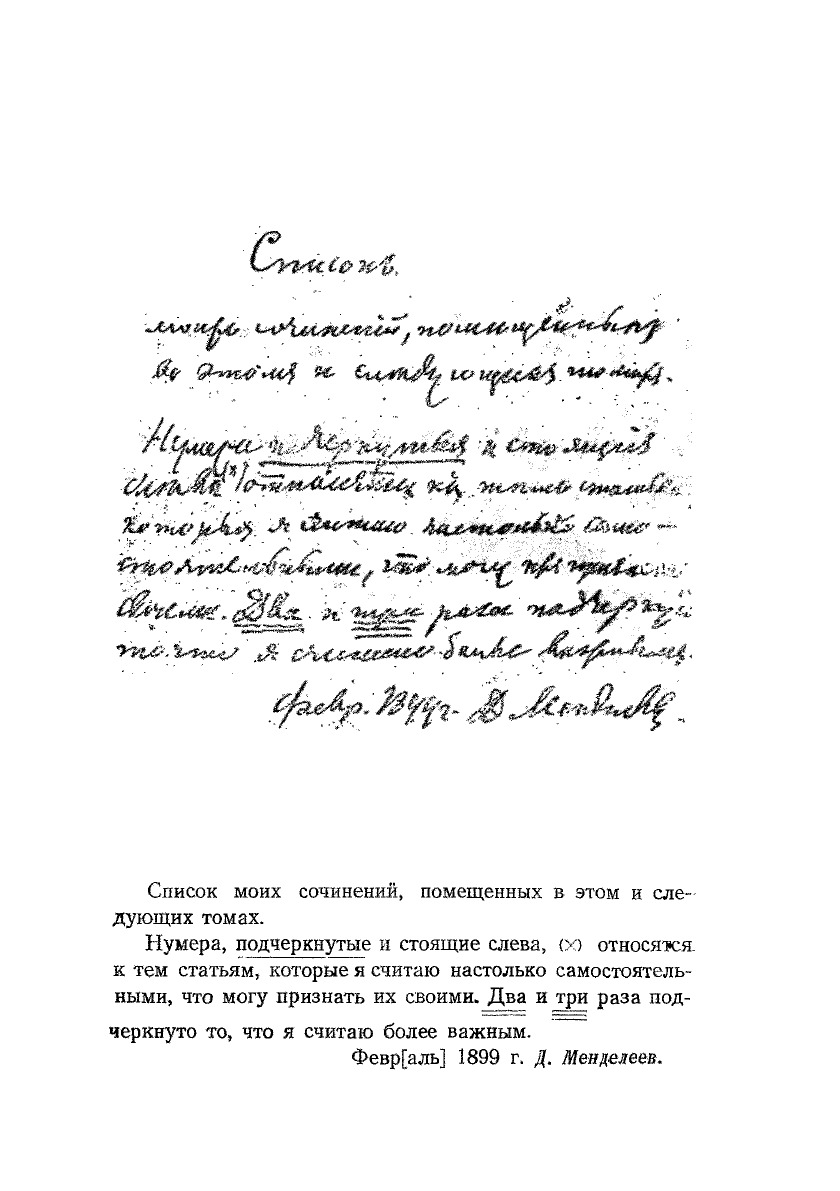 Списокъ
моихъ сочиненій, помещенныхъ
въ этомъ и следующихъ томахъ.
Нумера подчеркнутыя и стоящия
слева (х) относятся къ темъ статьямъ
которыя я считаю настолько само-
стоятельными, что могу признать
своими. Два и три раза подчеркну
то что я считаю более важнымъ.
Февр. 1899 г. Д Менделеевъ.
Список моих сочинений, помещенных в этом и сле-
дующих томах.
Нумера, подчеркнутые и стоящие слева, (×) относятся
к тем статьям, которые я считаю настолько самостоятель-
ными, что могу признать их своими. Два и три раза под-
черкнуто то, что я считаю более важным.
Февр[аль] 1899 г. Д. Менделеев.